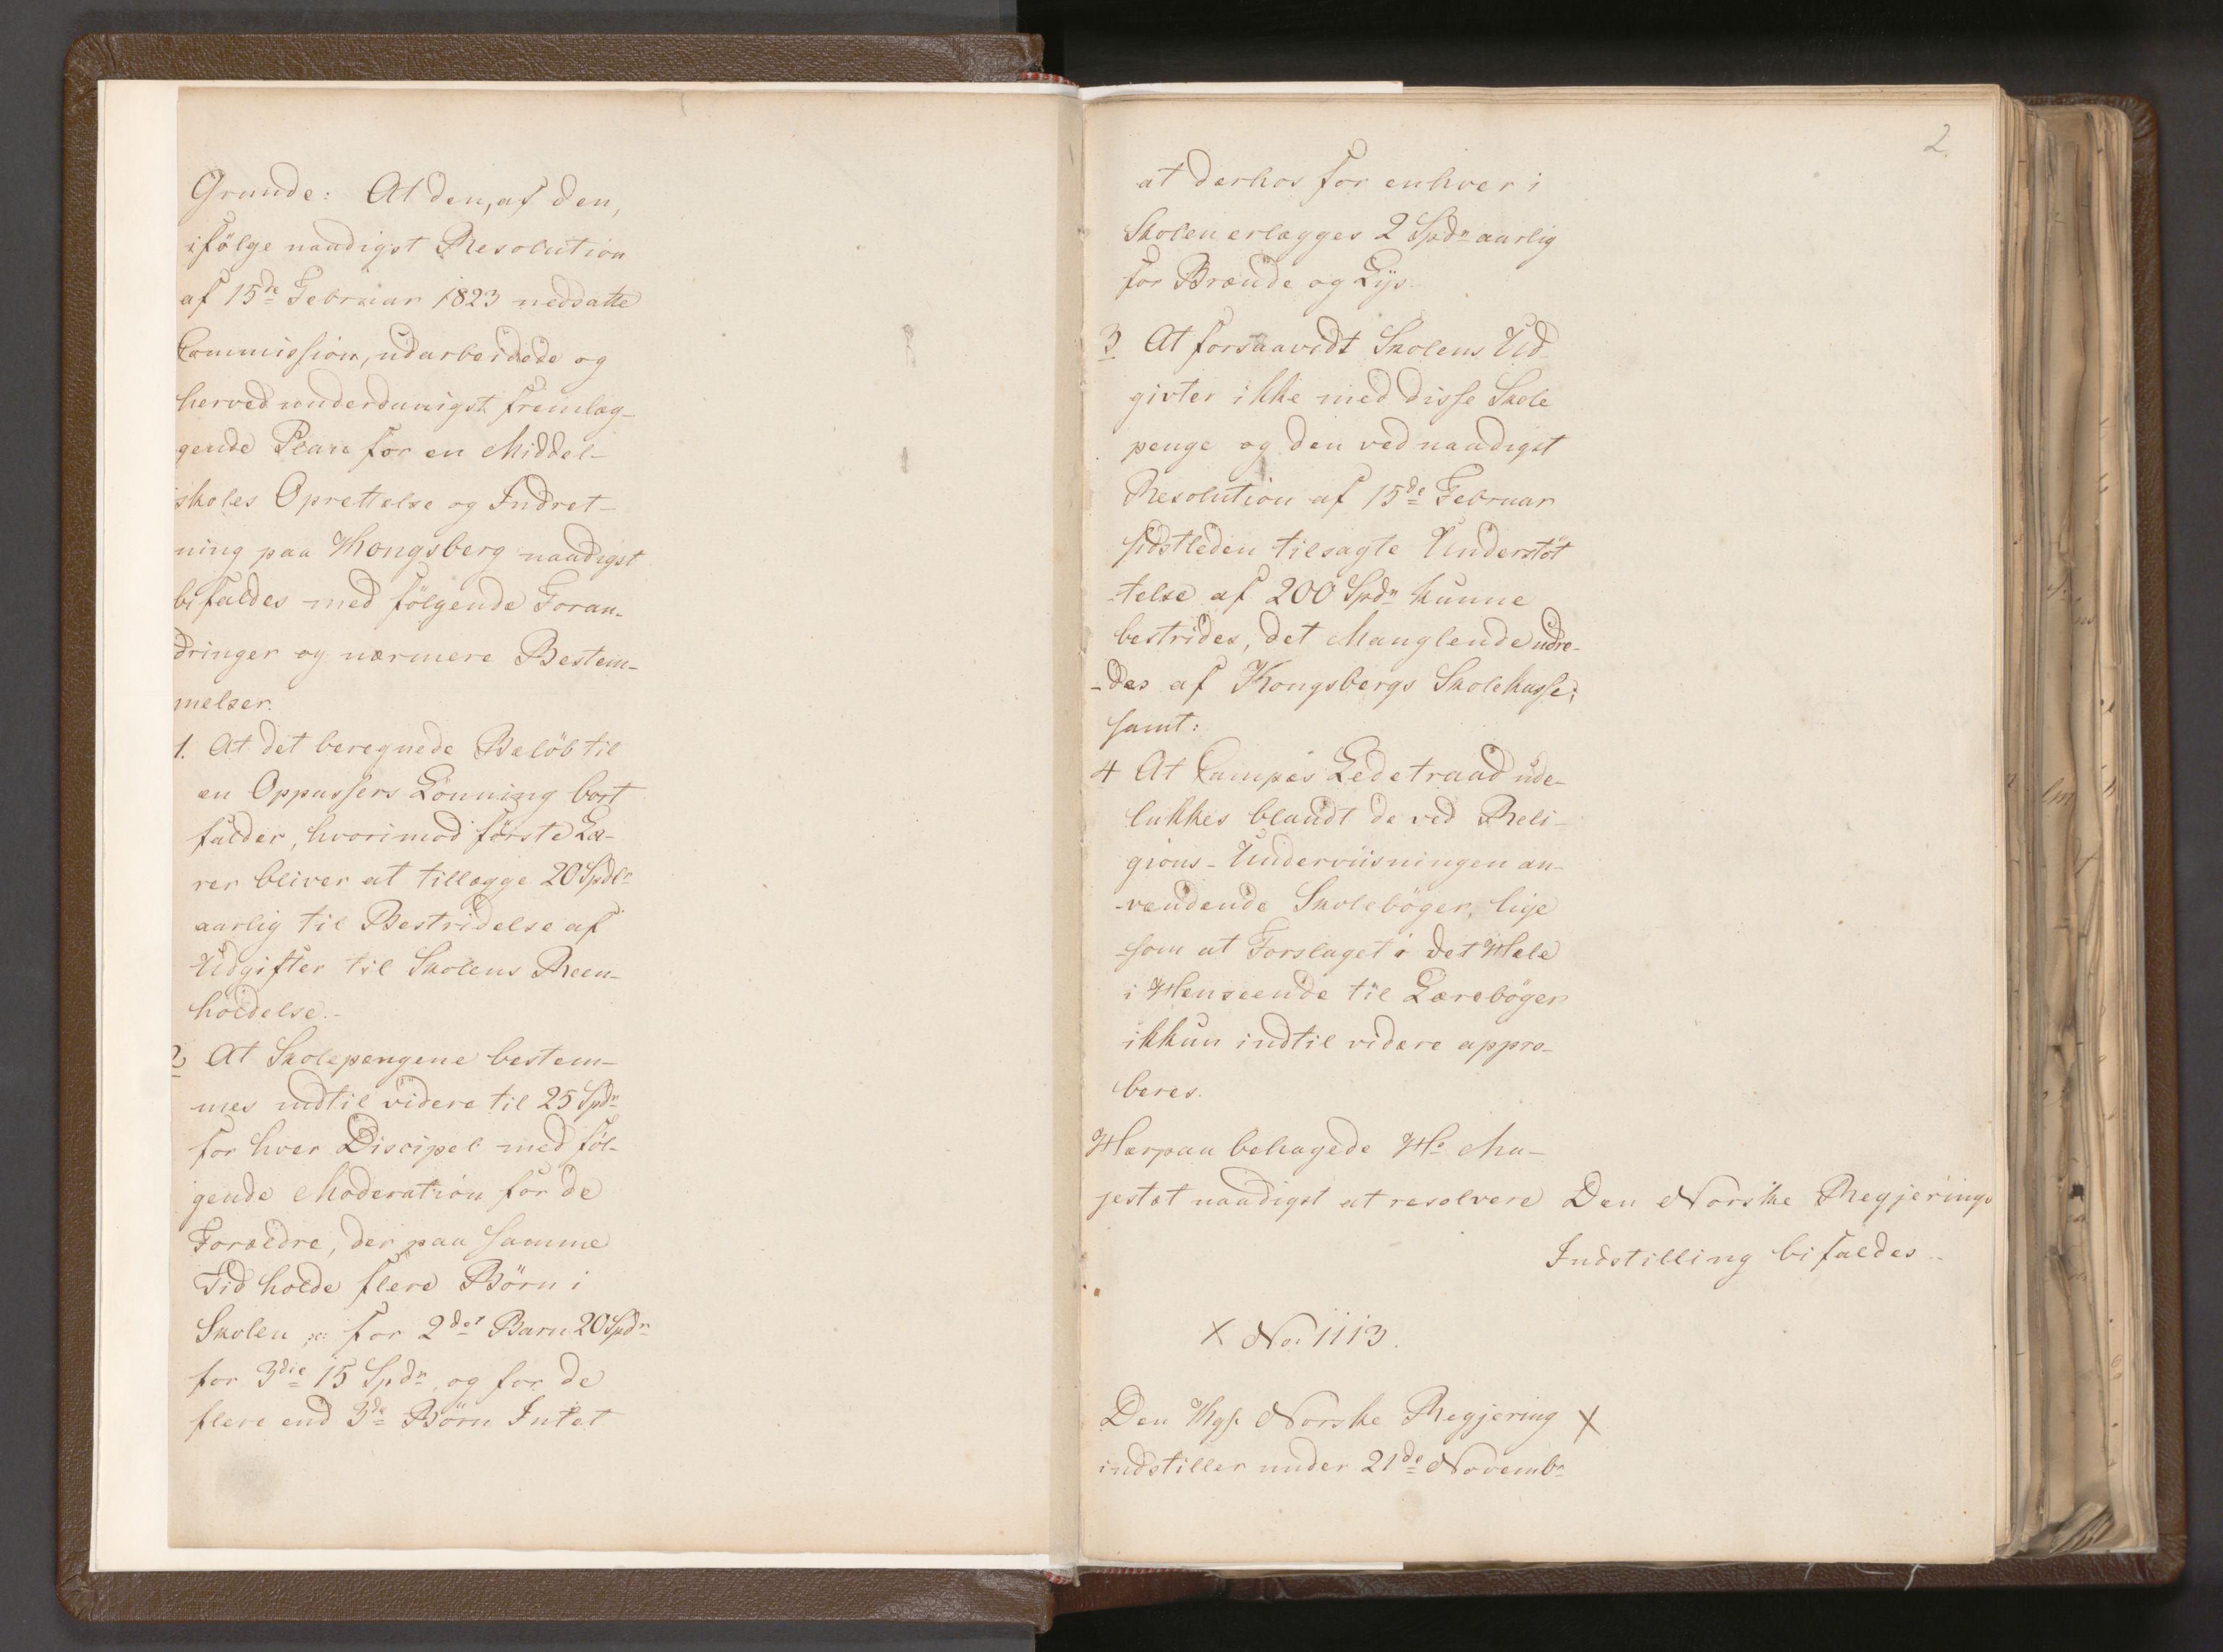 Grunde: At den, af den,
ifölge naadigst Resolution
af 15de Februar 1823 nedsatte
Commission, udarbeidede og
herved underdanigst fremlæg-
gende Plan for en Middel-
skoles Oprettelse og Indret-
ning paa Kongsberg naadigst
bifaldes med fölgende Foran-
dringer og nærmere Bestem-
melser.
1. At det beregnede Belöb til
en Oppassers Lönning bort
falder, hvorimod förste Læ-
rer bliver at tillægge 20 Spdlr
aarlig til Bestridelse af
Udgifter til Skolens Reen-
holdelse.-
2 At Skolepengene bestem-
mes indtil videre til 25 Spdr
for hver Discipel med föl-
gende Moderation for de
Forældre, der paa samme
Tid holde flere Börn i
Skolen for 2det Barn 20 Spdr
for 3die 15 Spdr, og for de
flere end 3de Börn Intet
2.
at derhos for enhver i
Skolen erlægges 2 Spdr aarlig
for Brænde og Lys.
3 At forsaavidt Skolens Ud
givter ikke med disse Skole
penge og den ved naadigst
Resolution af 15de Februar
sidstleden tilsagte Understöt
-telse af 200 Spdr kunne
bestrides, det Manglende udre-
-des af Kongsbergs Skolekasse;
samt:
4 At Campes Ledetraad ude-
lukkes blandt de ved Reli-
gions-Underviisningen an-
-vendende Skoleböger, lige
-som at Forslaget i det Hele
i Henseende til Læreböger
ikkun indtil videre appro-
beres.
Herpaa behagede Hs Ma-
jestæt naadigst at resolvere Den Norske Regjerings
Indstilling bifaldes..
X No: 1113.
Den Kgs. Norske Regjering X
indstiller under 21de Novembr